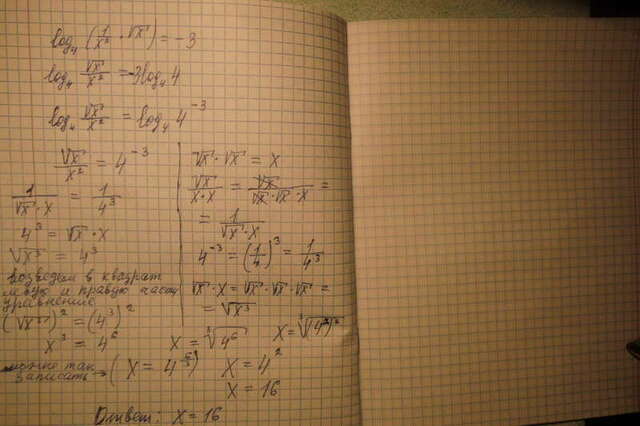 log₄ (1/x² · √x) = -3
log₄ √x/x² = -3log₄ 4
log₄ √x/x² = log₄ 4⁻³
√x/x² = 4⁻³
1/(√x · x) = 1/4³
4³ = √x · x
√x³ = 4³
возведем в квадрат
левую и правую часть
уравнение
(√x³)² = (4³)²
x³ = 4⁶
x = ³√4⁶
x = ³√(4²)³
можно так
записать → (x = 4^(6/3))
x = 4²
x = 16
√x · √x = x
√x/(x · x) = √x/(√x · √x · x) =
= 1/(√x · x)
4⁻³ = (1/4)³ = 1/4³
√x · x = √x · √x · √x =
= √x³
Ответ: x = 16